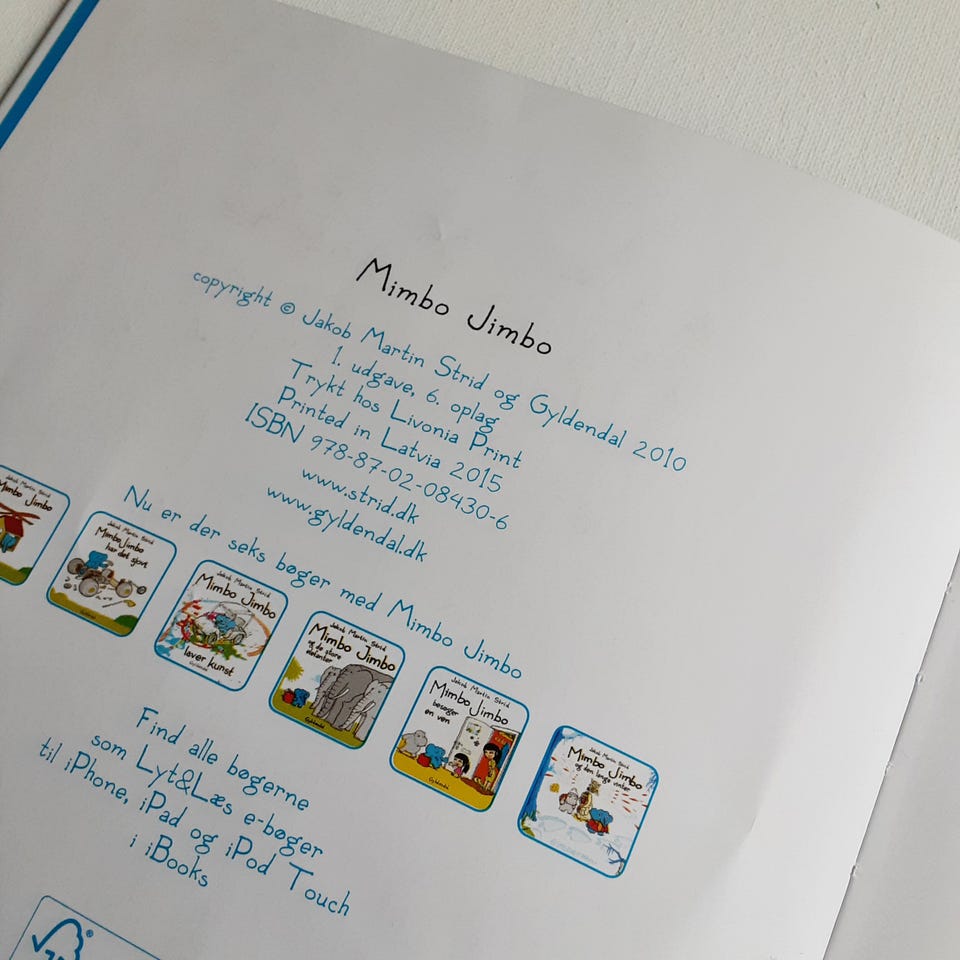 Mimbo Jimbo
copyright © Jakob Martin Strid og Gyldendal 2010
1. udgave, 6. oplag
Trykt hos Livonia Print
Printed in Latvia 2015
ISBN 978-87-02-08430-6
www.strid.dk
www.gyldendal.dk
Nu er der seks bøger med Mimbo Jimbo
Jakob Martin Strid
Mimbo Jimbo
Jakob Martin Strid
Mimbo Jimbo
har det sjovt
Gyldendal
Jakob Martin Strid
Mimbo Jimbo
laver kunst
Gyldendal
Jakob Martin Strid
Mimbo Jimbo
og de store
elefanter
Gyldendal
Jakob Martin Strid
Mimbo Jimbo
besøger
en ven
Gyldendal
Jakob Martin Strid
Mimbo Jimbo
og den lange vinter
Find alle bøgerne
som Lyt&Læs e-bøger
til iPhone, iPad og iPod Touch
i iBooks
®